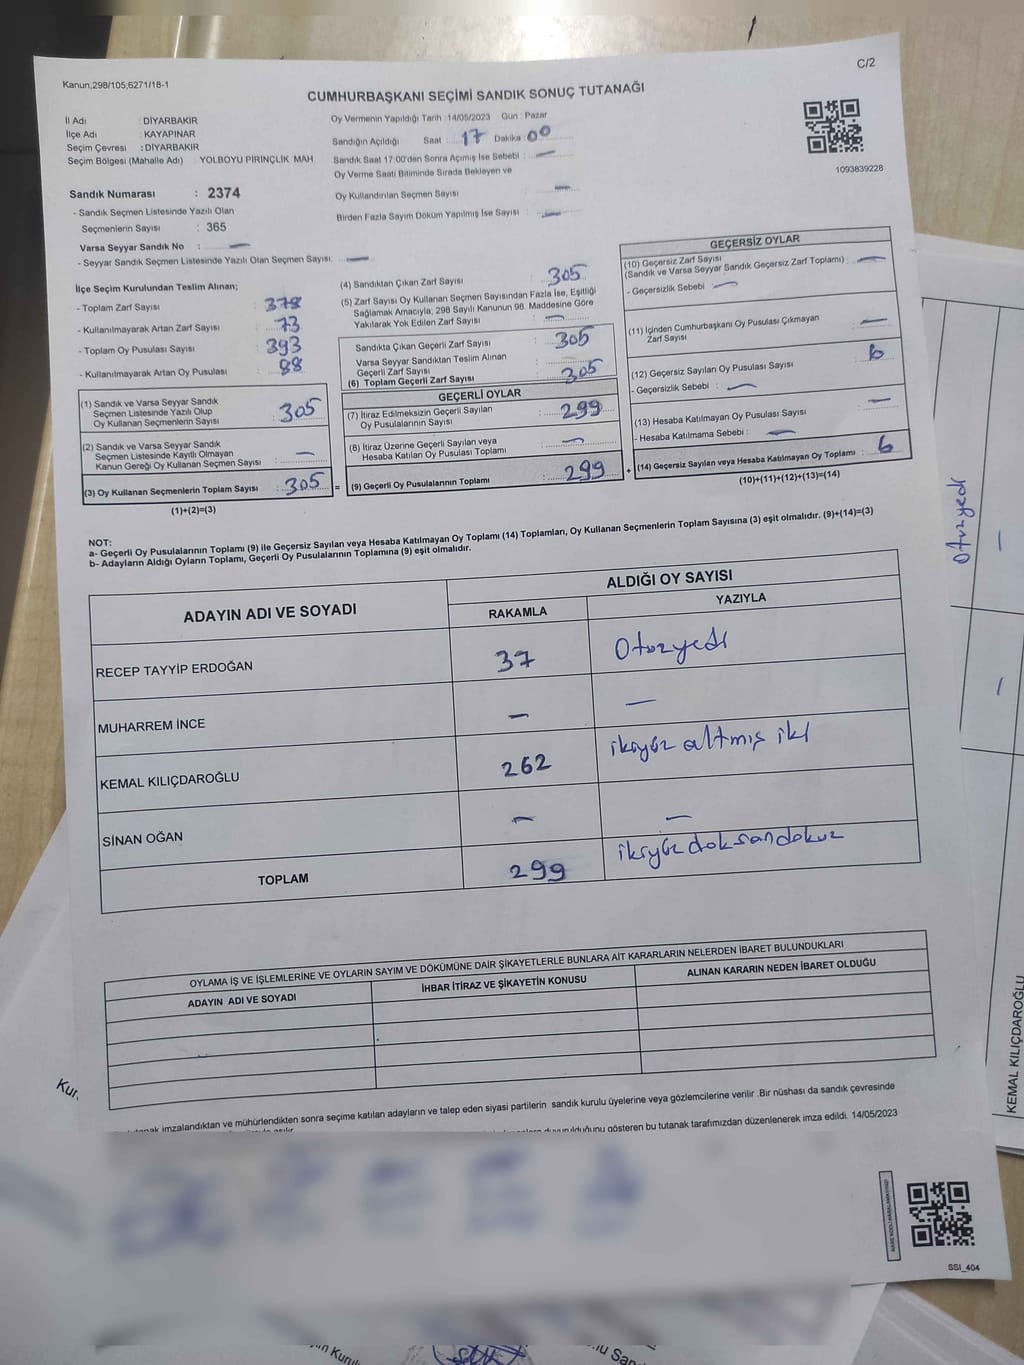 C/2
Kanun,298/105;6271/18-1
CUMHURBAŞKANI SEÇİMİ SANDIK SONUÇ TUTANAĞI
İl Adı : DİYARBAKIR
İlçe Adı : KAYAPINAR
Seçim Çevresi : DİYARBAKIR
Seçim Bölgesi (Mahalle Adı) YOLBOYU PİRİNÇLİK MAH
Sandık Numarası : 2374
- Sandık Seçmen Listesinde Yazılı Olan
Seçmenlerin Sayısı : 365
Varsa Seyyar Sandık No : —
- Seyyar Sandık Seçmen Listesinde Yazılı Olan Seçmen Sayısı: —
Oy Vermenin Yapıldığı Tarih :14/05/2023 Gün : Pazar
Sandığın Açıldığı Saat : 17 Dakika : 00
Sandık Saat 17:00'den Sonra Açımış İse Sebebi : —
Oy Verme Saati Bitiminde Sırada Bekleyen ve
Oy Kullandırılan Seçmen Sayısı —
Birden Fazla Sayım Döküm Yapılmış İse Sayısı : —
1093839228
İlçe Seçim Kurulundan Teslim Alınan;
- Toplam Zarf Sayısı : 378
- Kullanılmayarak Artan Zarf Sayısı : 73
- Toplam Oy Pusulası Sayısı : 393
- Kullanılmayarak Artan Oy Pusulası : 88
(1) Sandık ve Varsa Seyyar Sandık
Seçmen Listesinde Yazılı Olup
Oy Kullanan Seçmenlerin Sayısı : 305
(2) Sandık ve Varsa Seyyar Sandık
Seçmen Listesinde Kayıtlı Olmayan
Kanun Gereği Oy Kullanan Seçmen Sayısı : —
(3) Oy Kullanan Seçmenlerin Toplam Sayısı : 305 =
(1)+(2)=(3)
(4) Sandıktan Çıkan Zarf Sayısı : 305
(5) Zarf Sayısı Oy Kullanan Seçmen Sayısından Fazla İse, Eşitliği
Sağlamak Amacıyla, 298 Sayılı Kanunun 98. Maddesine Göre
Yakılarak Yok Edilen Zarf Sayısı : —
Sandıkta Çıkan Geçerli Zarf Sayısı : 305
Varsa Seyyar Sandıktan Teslim Alınan
Geçerli Zarf Sayısı :
(6) Toplam Geçerli Zarf Sayısı : 305
GEÇERLİ OYLAR
(7) İtiraz Edilmeksizin Geçerli Sayılan
Oy Pusulalarının Sayısı : 299
(8) İtiraz Üzerine Geçerli Sayılan veya
Hesaba Katılan Oy Pusulası Toplamı : —
(9) Geçerli Oy Pusulalarının Toplamı : 299 +
GEÇERSİZ OYLAR
(10) Geçersiz Zarf Sayısı
(Sandık ve Varsa Seyyar Sandık Geçersiz Zarf Toplamı) : —
- Geçersizlik Sebebi : —
(11) İçinden Cumhurbaşkanı Oy Pusulası Çıkmayan
Zarf Sayısı : —
(12) Geçersiz Sayılan Oy Pusulası Sayısı : 6
- Geçersizlik Sebebi : —
(13) Hesaba Katılmayan Oy Pusulası Sayısı : —
- Hesaba Katılmama Sebebi : —
(14) Geçersiz Sayılan veya Hesaba Katılmayan Oy Toplamı : 6
(10)+(11)+(12)+(13)=(14)
NOT:
a- Geçerli Oy Pusulalarının Toplamı (9) ile Geçersiz Sayılan veya Hesaba Katılmayan Oy Toplamı (14) Toplamları, Oy Kullanan Seçmenlerin Toplam Sayısına (3) eşit olmalıdır. (9)+(14)=(3)
b- Adayların Aldığı Oyların Toplamı, Geçerli Oy Pusulalarının Toplamına (9) eşit olmalıdır.
ADAYIN ADI VE SOYADI
ALDIĞI OY SAYISI
RAKAMLA YAZIYLA
RECEP TAYYİP ERDOĞAN 37 Otuzyedi
MUHARREM İNCE — —
KEMAL KILIÇDAROĞLU 262 ikiyüz altmış iki
SİNAN OĞAN — —
TOPLAM 299 ikiyüzdoksandokuz
OYLAMA İŞ VE İŞLEMLERİNE VE OYLARIN SAYIM VE DÖKÜMÜNE DAİR ŞİKAYETLERLE BUNLARA AİT KARARLARIN NELERDEN İBARET BULUNDUKLARI
ADAYIN ADI VE SOYADI İHBAR İTİRAZ VE ŞİKAYETİN KONUSU ALINAN KARARIN NEDEN İBARET OLDUĞU
imzalandıktan ve mühürlendikten sonra seçime katılan adayların ve talep eden siyasi partilerin sandık kurulu üyelerine veya gözlemcilerine verilir .Bir nüshası da sandık çevresinde
gösteren bu tutanak tarafımızdan düzenlenerek imza edildi. 14/05/2023
SSI_404
otuzyedi
KEMAL KILIÇDAROĞLU